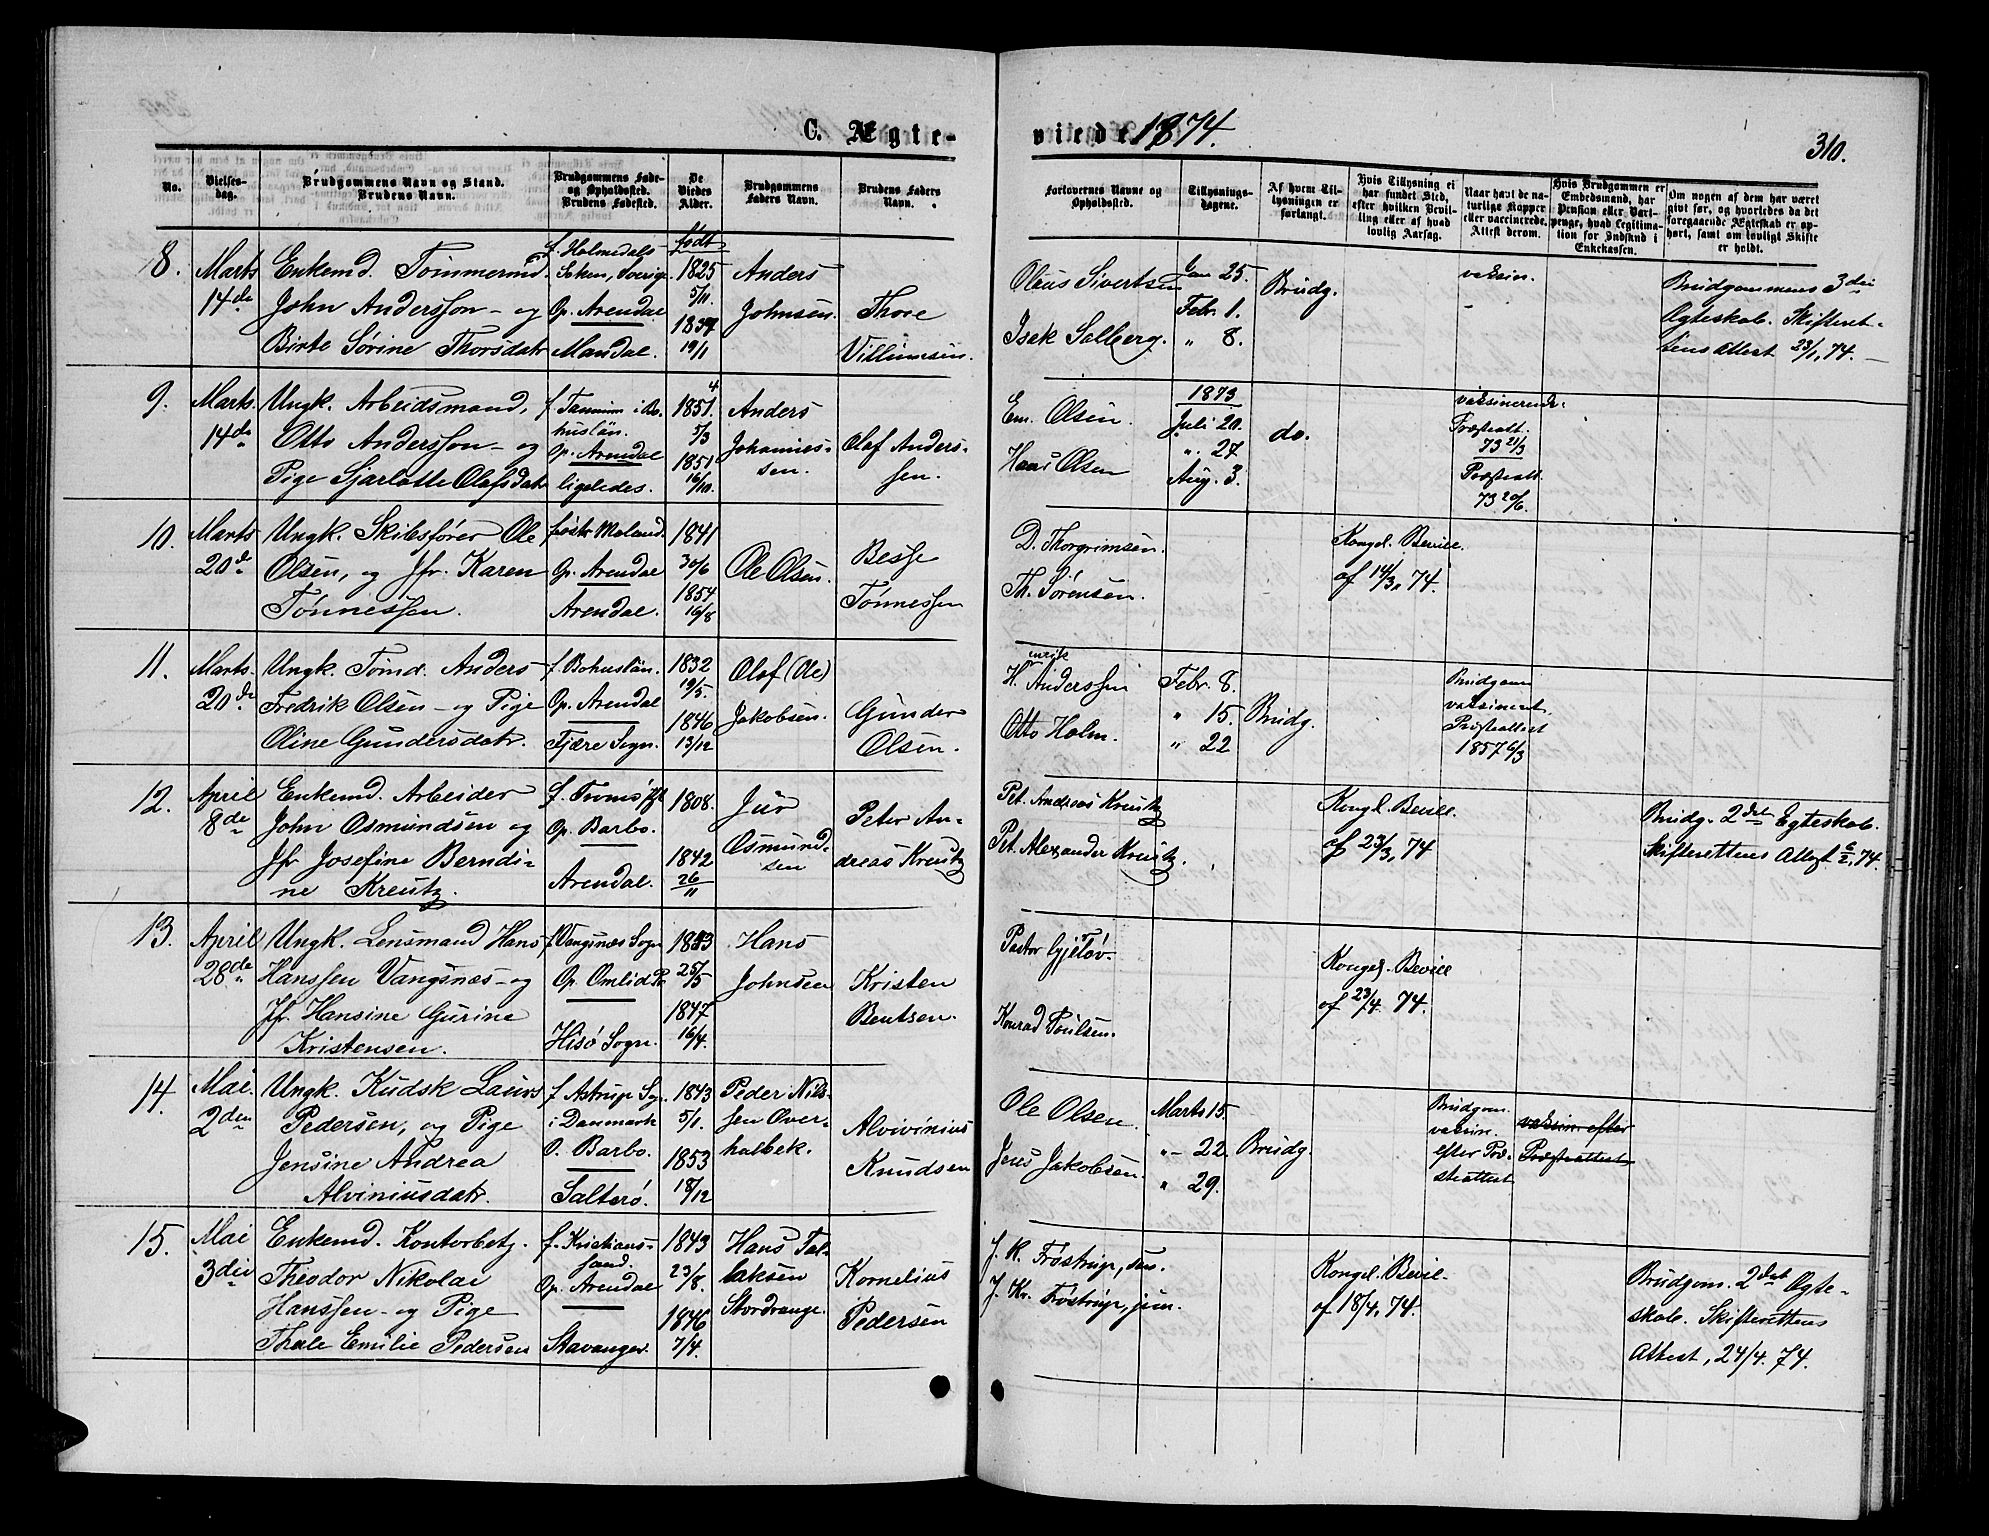 C. Ægte-
viede 1874.
310.
No.
Vielses-
dag.
Brudgommens Navn og Stand.
Brudens Navn.
Brudgommens Føde-
og Opholdssted.
Brudens Fødested.
De
Viedes
Alder.
Brudgommens
Faders Navn.
Brudens Faders
Navn.
Forlovernes Navne og
Opholdssted.
Tillysnings-
dagene.
Af hvem Til-
lysningen er
forlangt.
Hvis Tillysning ei
har fundet Sted,
efter hvilken Bevil-
ling eller af hvad
lovlig Aarsag.
Naar havt de na-
turlige Kopper
eller vaccinerede.
Attest derom.
Hvis Brudgommen er
Embedsmand, har
Pension eller Vart-
penge, hvad Legitima-
tion for Indskud i
Enkekassen.
Om nogen af dem har været
givt før, og hvorledes da det
foregaaende Ægteskab er op-
hørt, samt om lovligt Skifte
er holdt.
8.
Marts
14de
Enkemd. Tømmermd.
John Andersson - og
Birte Sørine Thorsdatr
f. Holmedals
Soken, Sverige
Op. Arendal
Mandal.
født
1825
5/11.
1837
19/1
Anders
Johnsen.
Thore
Villumsen.
Olaus Sivertsen
Isak Solberg.
Jan 25.
Febr. 1.
" 8.
Brudg.
vaksin.
-
Brudgommens 3die
Egteskab. Skifteret-
tens Attest 23/1, 74. -
9.
Marts.
14de
Ungk. Arbeidsmand,
Otto Andersson - og
Pige Sjarlotte Olafsdatr
f. Tanum i Bo-
huslän.
Op. Arendal
ligeledes.
1851.
5/3
1851
16/10.
Anders
Johannes-
sen.
Olaf Anders-
sen.
Em. Olsen.
Hans Olsen
1873
Juli 20.
". 27.
Aug. 3.
do.
vaksinerede.
Præsteatt.
73 21/3
Præsteatt.
73 20/6.
10.
Marts
20de
Ungk. Skibsfører Ole
Olsen, og Jfr. Karen
Tønnessen.
f. østr Moland.
Op. Arendal
Arendal.
1841
30/6
1854
16/8
Ole Olsen.
Besse
Tønnessen
D. Thorgrimsen.
Th. Sørensen.
Kongel. Bevill.
af 14/3, 74.
11.
Marts.
20de
Ungk. Tømd. Anders
Fredrik Olsen - og Pige
Oline Gundersdatr.
f. Bohuslän.
Op. Arendal
Fjære Sogn.
1832
19/5.
1846
13/12
Olof (Ole)
Jakobsen.
Gunder
Olsen.
Henrik Anderssen
Otto Holm.
Febr. 8.
" 15.
" 22
Brudg.
Brudgom
vaksineret
Præsteattest
1857 6/3
12.
April
8de
Enkemd. Arbeider
John Osmundsen og
Jfr Josefine Berndi-
ne Kreutz.
f. Froms Pgt
Op. Barbo.
Arendal.
1808.
1842
26/11
Jur
Osmund-
sen
Peter An-
dreas Kreutz
Pet. Andreas Kreutz
Pet. Alexander Kreutz.
Kongl. Bevill.
af 23/3, 74
Brudg. 2det Egteskab.
Skifterettens Attest 6/2, 74.
13.
April
28de
Ungk. Lensmand Hans
Hanssen Vangsnæs - og
Jfr. Hansine Gurine
Kristensen.
f. Vangsnæs Sogn
Op. Omlid Pr
Hisø Sogn.
1843
25/5
1847
16/4.
Hans
Johnsen
Kristen
Bentsen.
Pastor Gjeløv.
Konrad Poulsen.
Kongel. Bevill
af 23/4. 74.
14.
Mai.
2den
Ungk. Kudsk Laurs
Pedersen, og Pige
Jensine Andrea
Alviniusdatr.
f. Astrup Sg.
i Danmark
O. Barbo.
Salterø.
1843
5/1.
1853
18/12
Peder Nils-
sen Over-
halbek.
Alvivinius
Knudsen
Ole Olsen.
Jens Jakobsen.
Marts 15.
"- 22.
" 29.
Brudg.
Brudgom.
vaksin.
efter Præ-
steattest
vaksin. efter
Præsteattest
15.
Mai
3die
Enkemd. Kontorbetj.
Theodor Nikolai
Hanssen - og Pige
Thale Emilie Pedersen
f. Kristians-
sand.
Op. Arendal
Stavanger.
1843
23/8.
1846
7/4.
Hans Tal-
laksen
Stordrange.
Kornelius
Pedersen
J. K. Frøstrup, sen.
J. Kr. Frøstrup, jun.
Kongel. Bevil-
af 18/4, 74.
Brudgom. 2det Egte-
skab. Skifterettens
Attest, 24/4. 74.